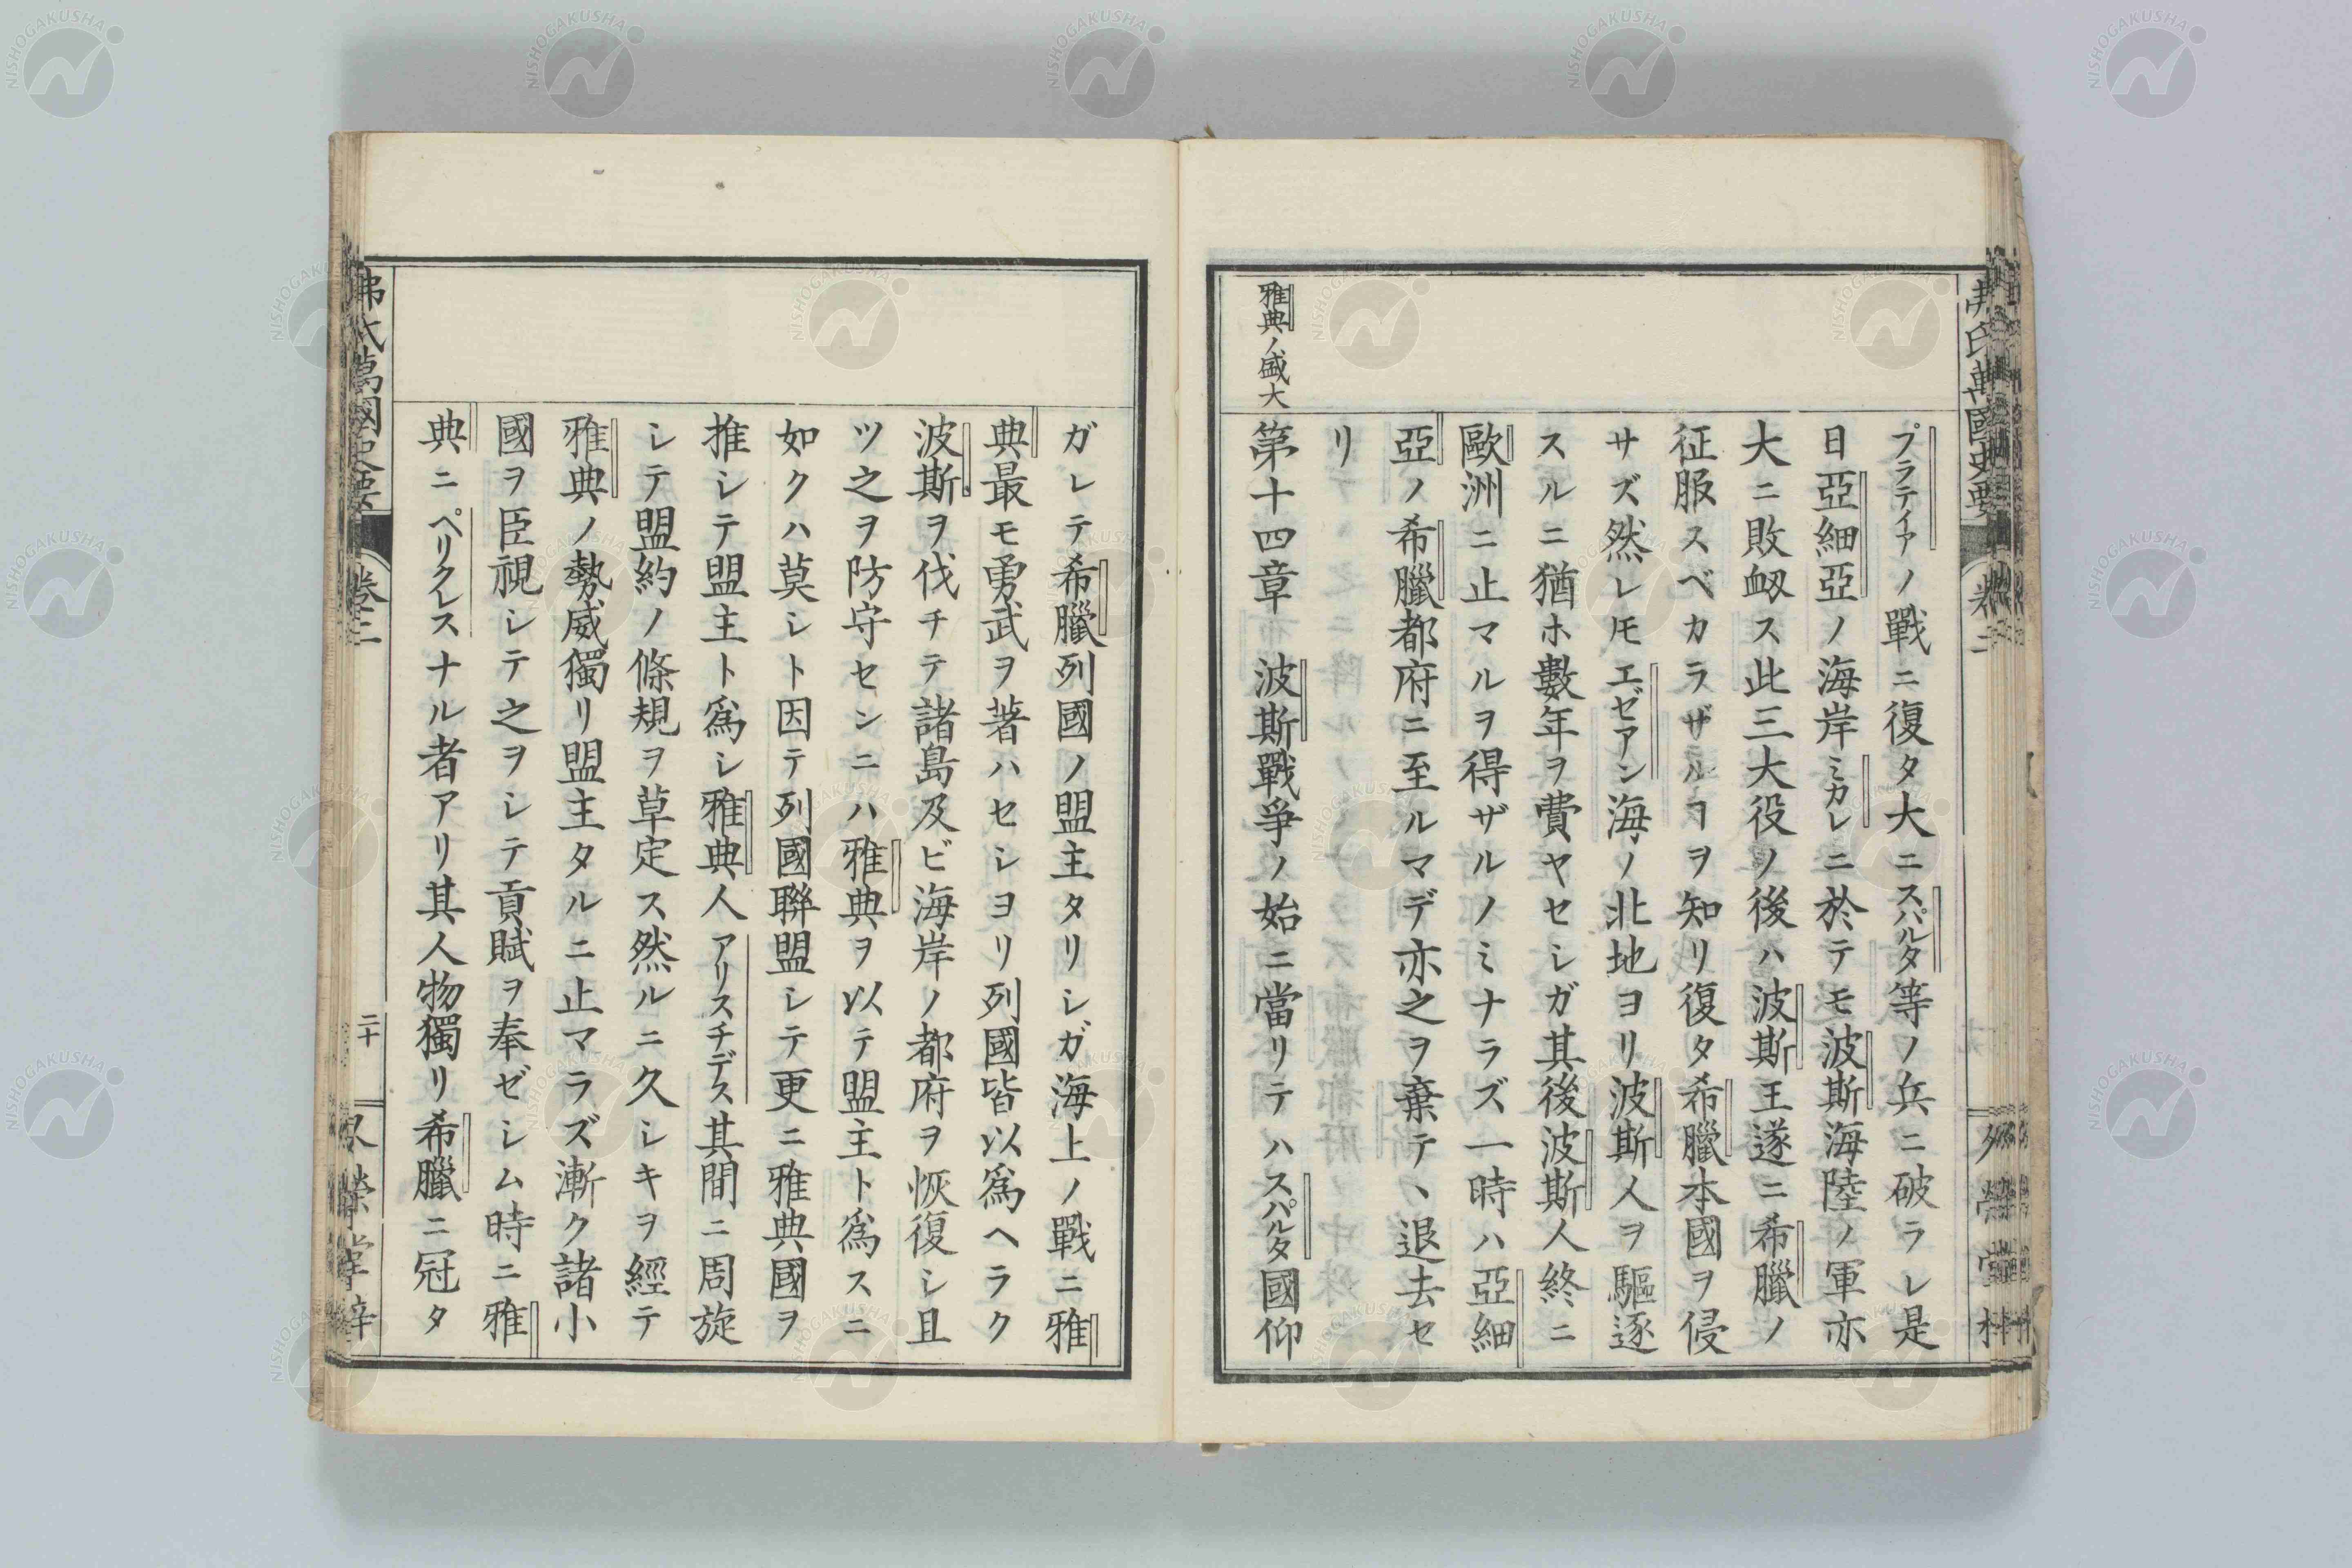 プラテイアノ戰ニ復タ大ニスパルタ等ノ兵ニ破ラレ是
日亞細亞ノ海岸ミカレニ於テモ波斯海陸ノ軍亦
大ニ敗衂ス此三大役ノ後ハ波斯王遂ニ希臘ノ
征服スベカラザルヿヲ知リ復タ希臘本國ヲ侵
サズ然レ𪜈エゼアン海ノ北地ヨリ波斯人ヲ驅逐
スルニ猶ホ數年ヲ費ヤセシガ其後波斯人終ニ
歐洲ニ止マルヲ得ザルノミナラズ一時ハ亞細
亞ノ希臘都府ニ至ルマデ亦之ヲ棄テヽ退去セ
リ
雅典ノ盛大
第十四章 波斯戰爭ノ始ニ當リテハスパルタ國仰
ガレテ希臘列國ノ盟主タリシガ海上ノ戰ニ雅
典最モ勇武ヲ著ハセシヨリ列國皆以爲ヘラク
波斯ヲ伐チテ諸島及ビ海岸ノ都府ヲ恢復シ且
ツ之ヲ防守センニハ雅典ヲ以テ盟主ト爲スニ
如クハ莫シト因テ列國聯盟シテ更ニ雅典國ヲ
推シテ盟主ト爲シ雅典人アリスチデス其間ニ周旋
シテ盟約ノ條規ヲ草定ス然ルニ久シキヲ經テ
雅典ノ勢威獨リ盟主タルニ止マラズ漸ク諸小
國ヲ臣視シテ之ヲシテ貢賦ヲ奉ゼシム時ニ雅
典ニペリクレスナル者アリ其人物獨リ希臘ニ冠タ
萬國史要
二十
NISHOGAKUSHA